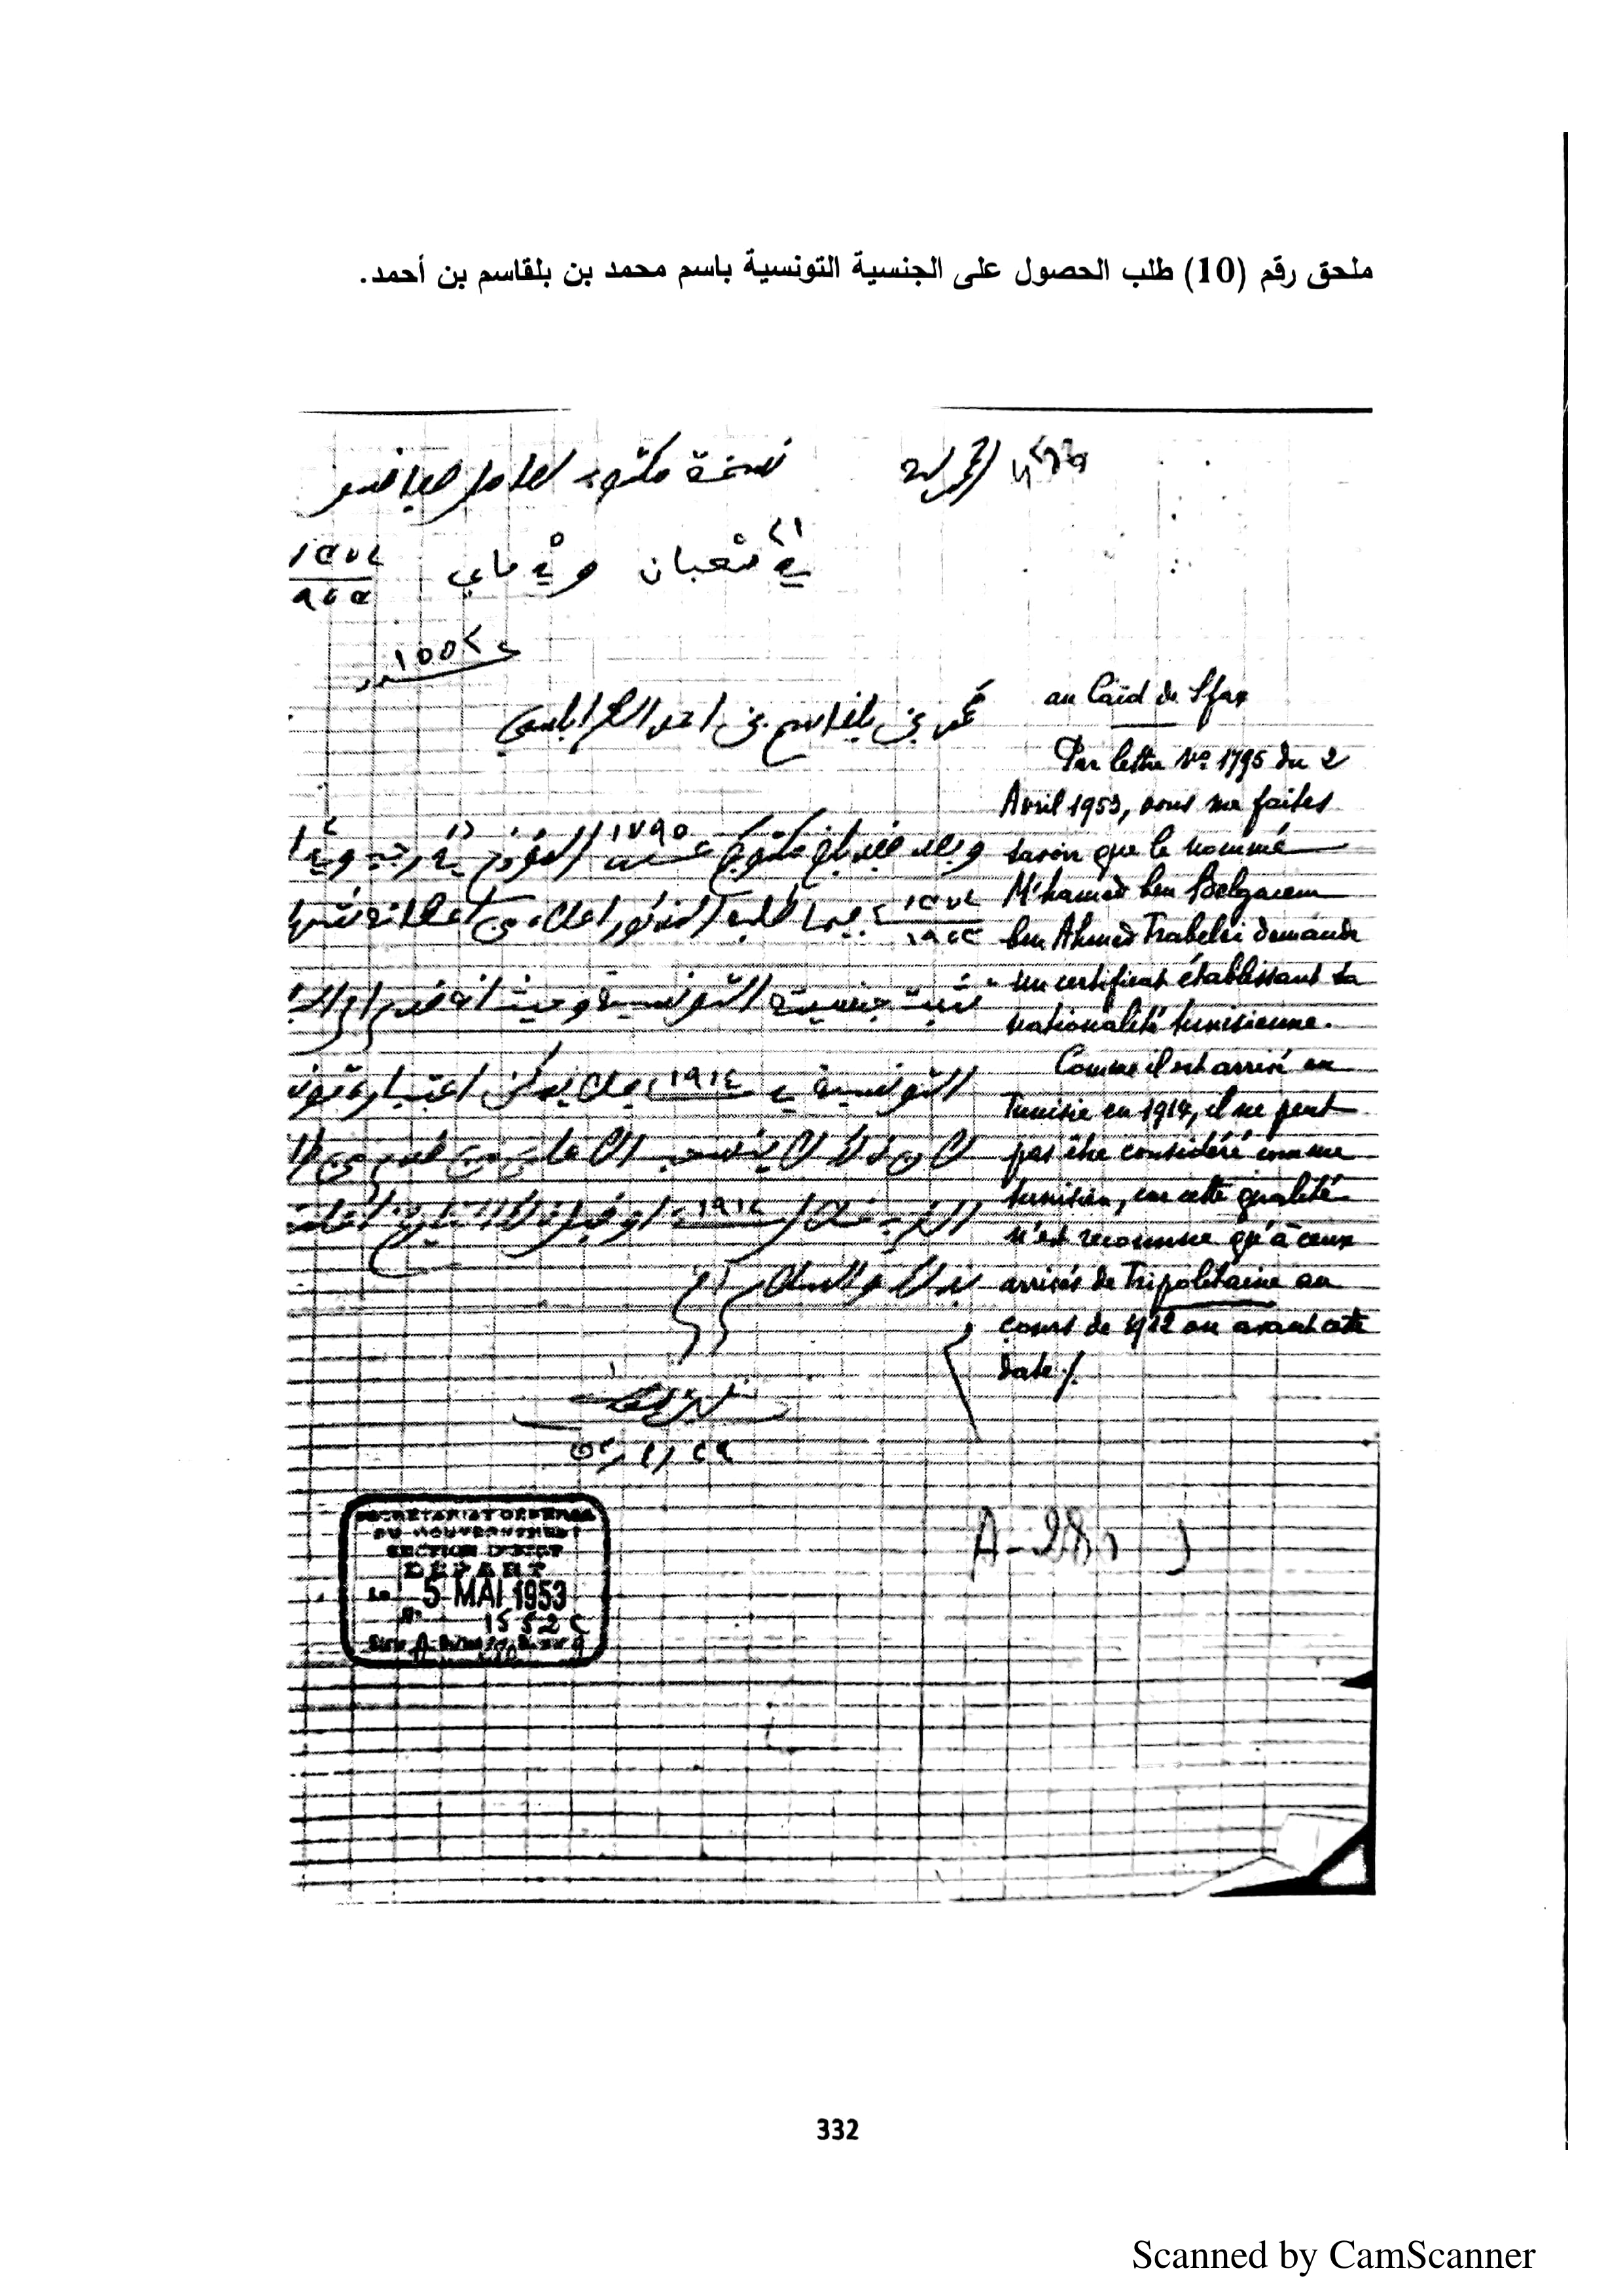 ملحق رقم (10) طلب الحصول على الجنسية التونسية باسم محمد بن بلقاسم بن أحمد.
الحمد لله
نسخة مكتوب لعامل صفاقس
في ٢١ شعبان وفي ٥ ماي
١٥٥٢
محمد بن بلقاسم بن احمد الطرابلسي
وبعد فقد بلغ مكتوبكم عدد ١٧٩٥ المؤرخ في رجب وفي
فيما طلبه المذكور اعلاه من اعطائه
تثبت جنسيته التونسية وحيث انه قدم
التونسية في ١٩١٤ يمكن اعتباره
لان ذلك لا ينسحب الا على من قدم من
١٩١٢ او قبل ذلك التاريخ
بذلك والسلام
au Caïd de Sfax
Par lettre No 1795 du 2
Avril 1953, vous me faites
savoir que le nommé
M'hamed ben Belgacem
ben Ahmed Trabelsi demande
un certificat établissant sa
nationalité tunisienne.
Comme il est arrivé en
Tunisie en 1914, il ne peut
pas être considéré comme
tunisien, car cette qualité
n'est reconnue qu'à ceux
arrivés de Tripolitaine au
cours de 1912 ou avant cette
date ./.
SECRETARIAT GENERAL
DU GOUVERNEMENT
SECTION D'ETAT
DEPART
Le 5 MAI 1953
No 1552 C
A-28
332
Scanned by CamScanner